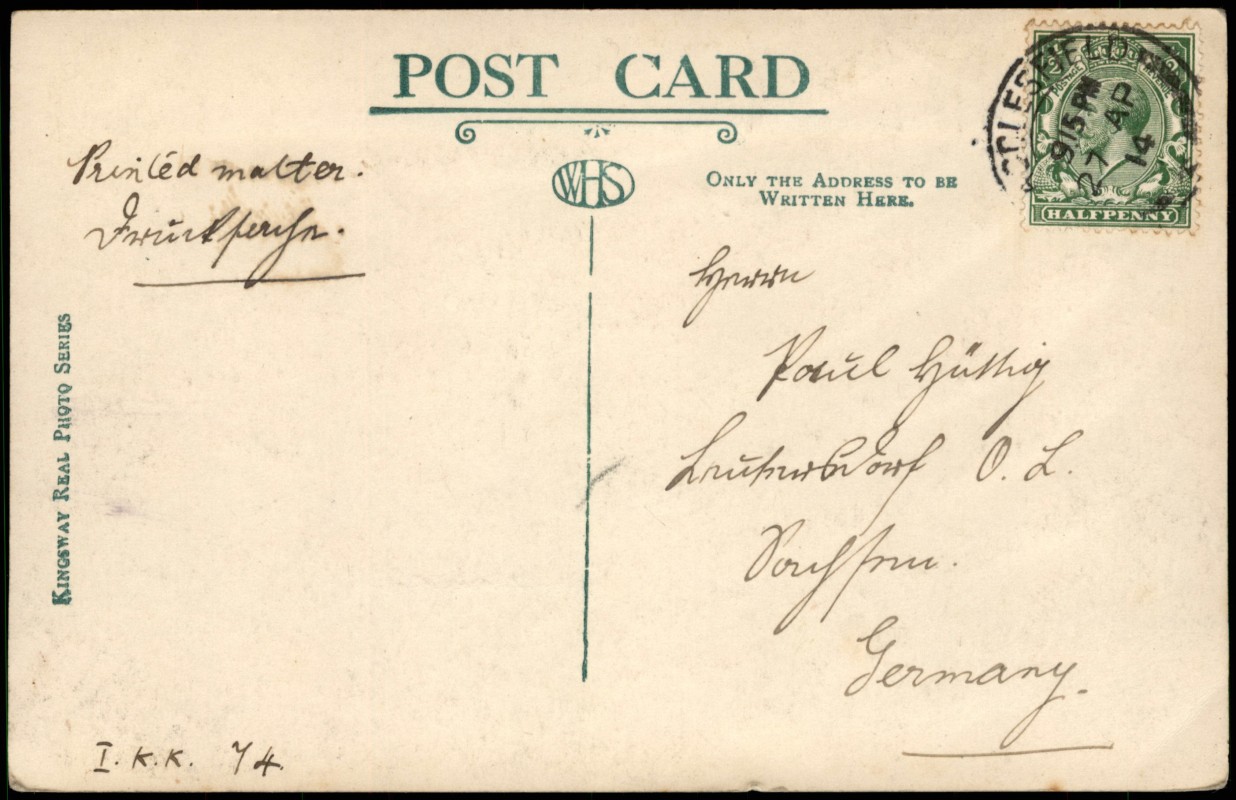 POST CARD
WHS
ONLY THE ADDRESS TO BE
WRITTEN HERE.
CCLESFIELD
915 PM
27 AP
14
HALFPENNY
Printed matter.
Drucksache.
Herrn
Paul Hüttig
Leutersdorf O. L.
Sachsen.
Germany.
KINGSWAY REAL PHOTO SERIES
I. K. K. 74.